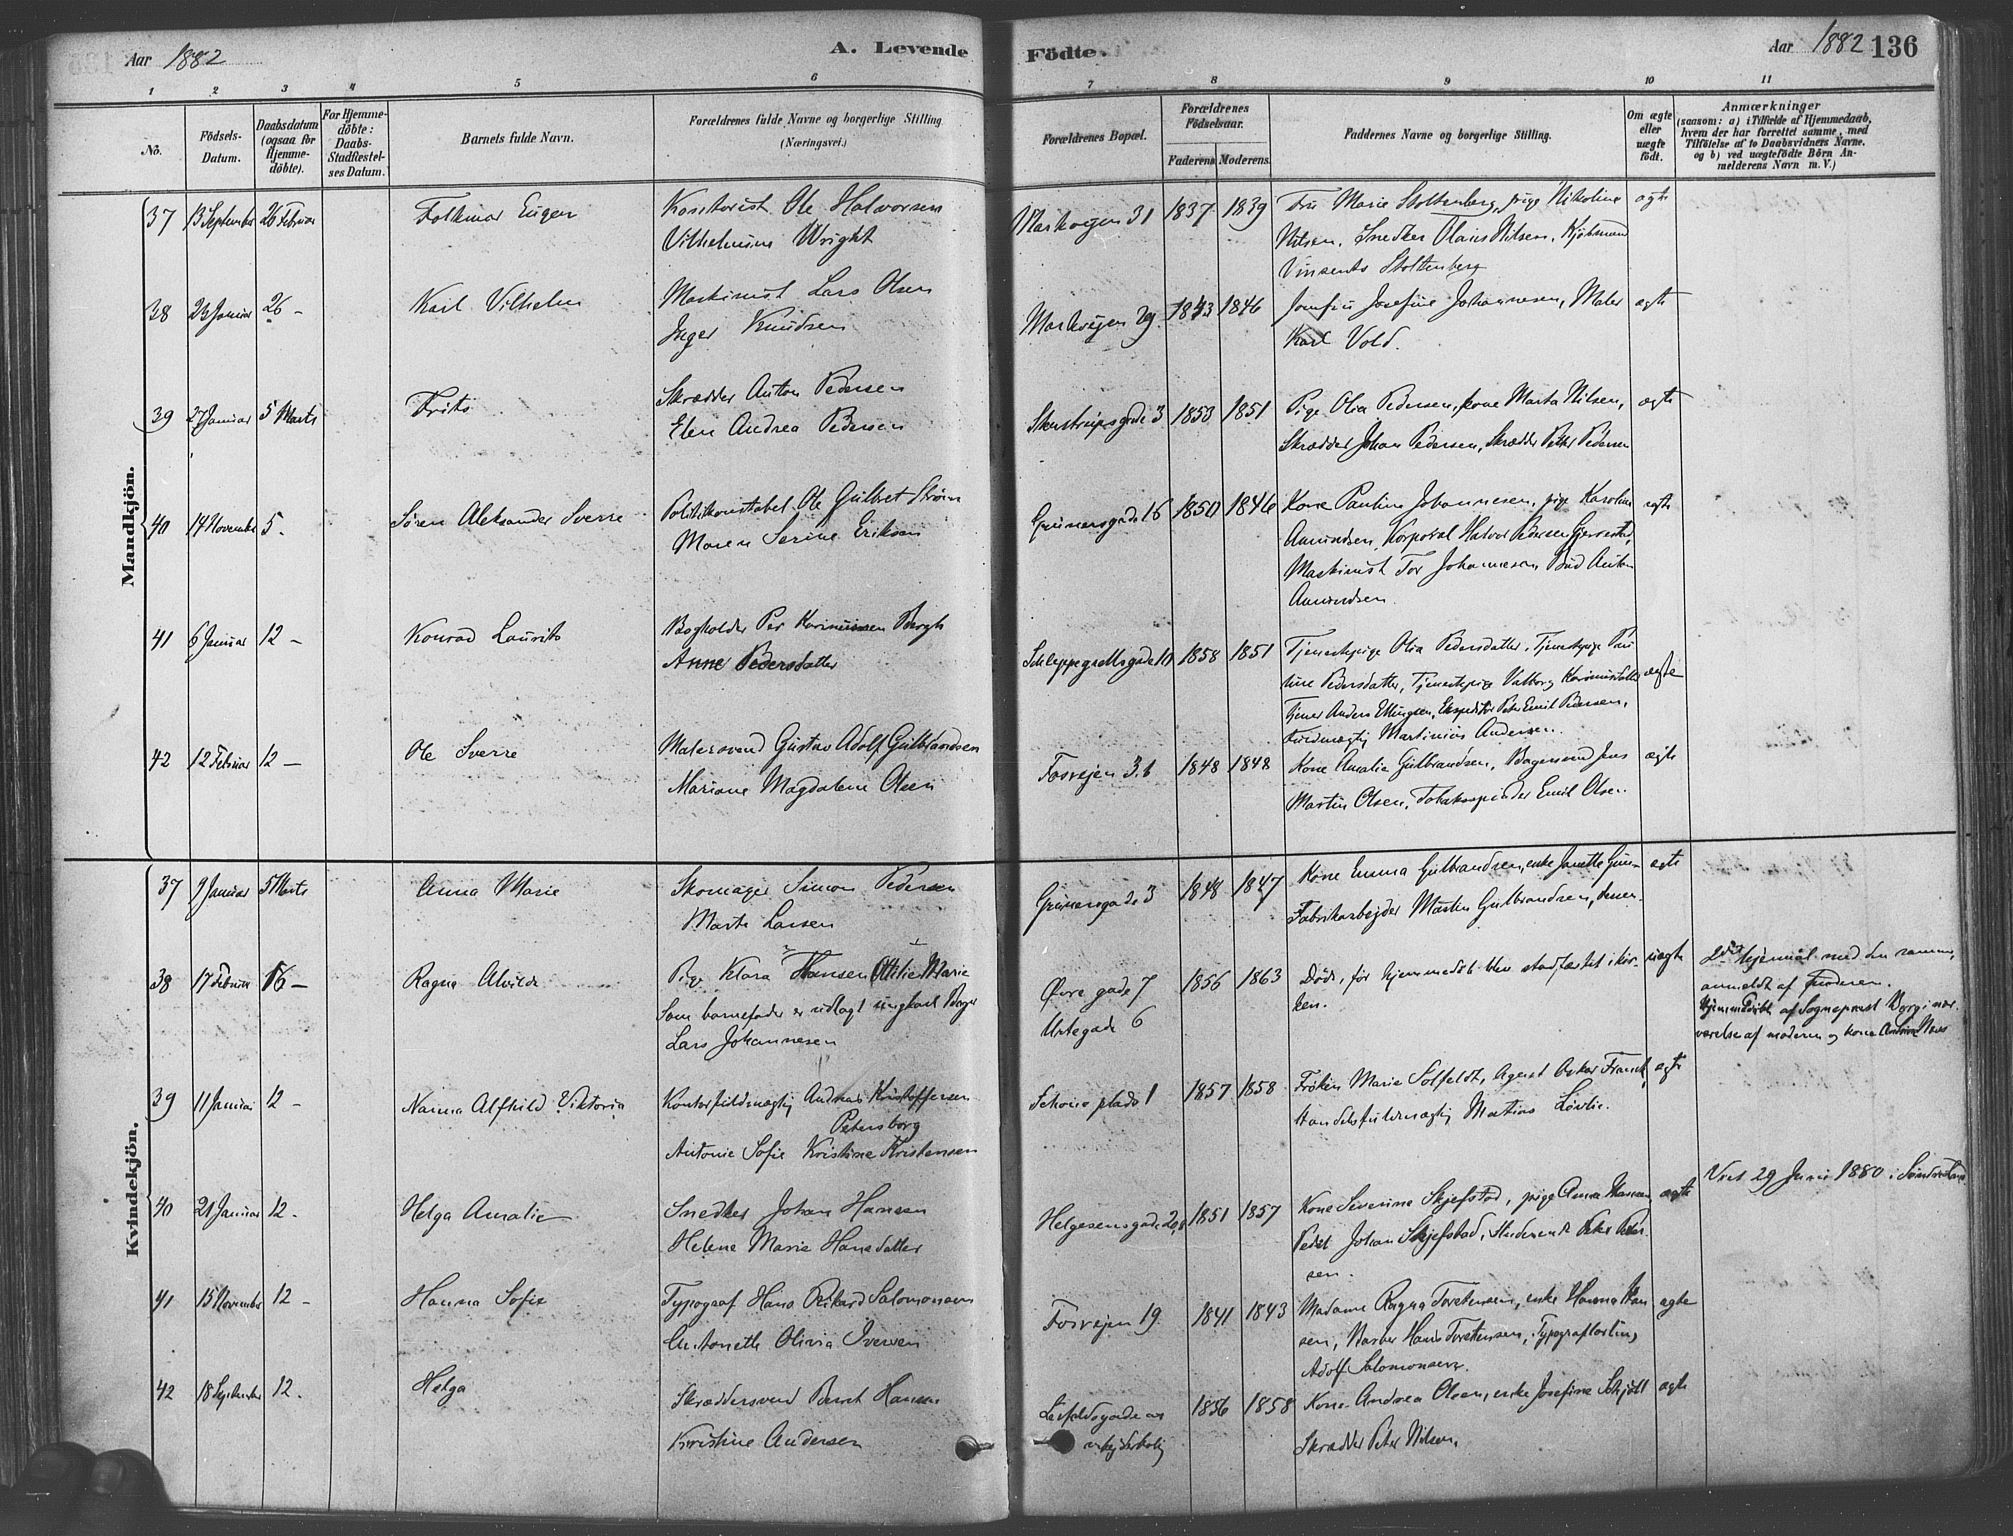 Aar 1882
A. Levende
Födte.
Aar 1882 136
1 2 3 4 5 6 7 8 9 10 11
No.
Födsels-Datum.
Daabsdatum (ogsaa for Hjemme-döbte).
For Hjemme-döbte: Daabs-Stadfestel-ses Datum.
Barnets fulde Navn.
Forældrenes fulde Navne og borgerlige Stilling (Næringsvei.)
Forældrenes Bopæl.
Forældrenes Födselsaar.
Faderens. Moderens.
Faddernes Navne og borgerlige Stilling.
Om ægte eller uægte födt.
Anmærkninger
(saasom: a) i Tilfælde af Hjemmedaab,
hvem der har forrettet samme, med
Tilföielse af to Daabsvidners Navne,
og b) ved uægtefödte Börn An-
melderens Navn m. V.)
Mandkjön.
37 13 September 26 Februar Folkmar Eugen Kontorist Ole Halvorsen
Vilhelmine Wright
Markvejen 31 1837 1839 Fru Marie Stoltenberg, pige Nikoline ægte
Nilsen, Snedker Olaus Nilsen, Kjøbmand
Vinsents Stoltenberg
38 23 Januar 26 - Karl Vilhelm Maskinist Lars Olsen
Inger Knudsen
Markvejen 29. 1843 1846 Jomfru Josefine Johannesen, Maler ægte
Karl Vold.
39 27 Januar 5 Marts Frits Skrædder Anton Pedersen
Elen Andrea Pedersen
Skustrupsgade 3 1853 1851 Pige Olia Pedersen, kone Marta Nilsen, ægte
Skrædder Johan Pedersen, Skrædder Petter Pedersen
40 14 November 5. Søren Aleksander Sverre Politikonstabel Ole Gulbret Strøm
Maren Serine Eriksen
Grünersgade 16 1850 1846 Kone Pauline Johannesen, pige Karoline ægte
Amundsen, Korporal Halvor Pedersen
Maskinist Tor Johannesen Bud Anton
Amundsen.
41 6 Januar 12 - Konrad Laurits Bogholder Per Karinusen Bergh
Anne Pedersdatter
Schleppegrellsgade 10 1858 1851 Tjenestepige Olia Pedersdatter, Tjenestepige
Pedersdatter, Tjenestepige Valborg ægte
Tjener Anders Ellingsen, Ekspeditør Peter Emil Pedersen,
Fuldmægtig Martinius Andersen.
42 12 Februar 12 - Ole Sverre Malersvend Gustav Adolf Gulbrandsen
Mariane Magdalene Olsen
Fosvejen 31 1848 1848 Kone Amalie Gulbrandsen, Bagersvend Jens ægte
Martin Olsen, Tobakspinder Emil Olsen.
Kvindekjön.
37 9 Januar 5 Marts Anna Marie Skomager Simon Pedersen
Marte Larsen
Grünersgade 3 1848 1847 Kone Emma Gulbrandsen, enke Janette ægte
Fabrikarbejder Martin Gulbrandsen,
38 17 Februar 16 - Ragna Alvilde Pige Klara Hansen Ottilie Marie
Som barnefader er udlagt ungkarl Bager
Lars Johannesen
Øvre gade 7 1856 1863 Døde, før hjemmedåb blev stadfæstet i kir- uægte
ken.
Urtegade 6
med den samme,
anmeldt af Faderen.
Hjemmedøbt af Sogneprest Borg i nær-
værelse af moderen og kone
39 11 Januar 12 - Nanna Alfhild Viktoria Kontorfuldmægtig Andreas Kristoffersen
Petersborg
Antonie Sofie Kristine Kristensen
Schous plads 1 1857 1858 Frøken Marie Solfeldt, Agent Oskar Franck, ægte
Handelsfuldmægtig Matias Løvlie.
40 21 Januar 12. Helga Amalie Snedker Johan Hansen
Helene Marie Hansdatter
Helgesensgade 1851 1857 Kone Severine Skjefstad, pige Anna Hansen ægte
Johan Skjefstad, Studerende Peter Peter-
sen.
Viet 29 Juni 1880 i
41 15 November 12 - Hanna Sofie Typograf Hans Rikard Salomonsen
Antonette Olivia Iversen
Fosvejen 19 1841 1843 Madame Ragna Torstensen, enke Hanna Han- ægte
sen, Barber Hans Torstensen, Typograflærling
Adolf Salomonsen.
42 18 September 12. Helga Skræddersvend Bernt Hansen
Kristine Andersen
1856 1858 Kone Andrea Olsen, enke Josefine ægte
Skrædder Peter Nilsen.